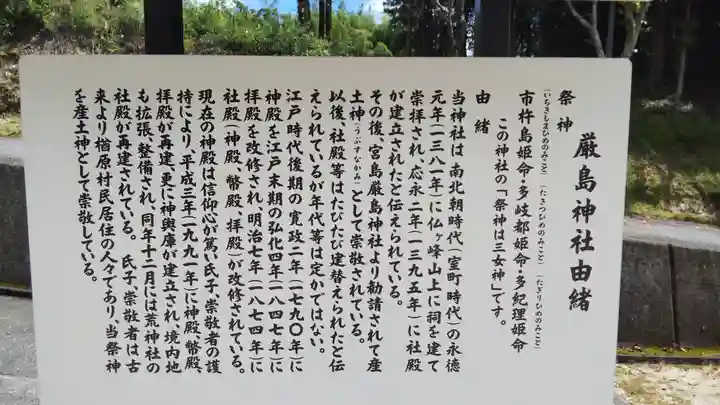 厳島神社由緒
祭神
(いちきしまひめのみこと)(たきつひめのみこと)(たぎりひめのみこと)
市杵島姫命・多岐都姫命・多紀理姫命
この神社の「祭神は三女神」です。
由緒
当神社は、南北朝時代(室町時代)の永徳
元年(一三八一年)に仏ヶ峰山上に祠を建て
崇拝され、応永二年(一三九五年)に社殿
が建立されたと伝えられている。
その後、宮島厳島神社より勧請されて産
土神(うぶすなかみ)として崇敬されている。
以後、社殿等はたびたび建替えられたと伝
えられているが年代等は定かではない。
江戸時代後期の寛政二年(一七九〇年)に
神殿を江戸末期の弘化四年(一八四七年)に
拝殿を改修され、明治七年(一八七四年)に
社殿(神殿、幣殿、拝殿)が改修されている。
現在の神殿は信仰心が篤い氏子、崇敬者の護
持により、平成三年(一九九一年)に神殿、幣殿、
拝殿が再建、更に神輿庫が建立され、境内地
も拡張、整備され、同年十二月には荒神社の
社殿が再建されている。 氏子、崇敬者は古
来より楢原村民居住の人々であり、当祭神
を産土神として崇敬している。